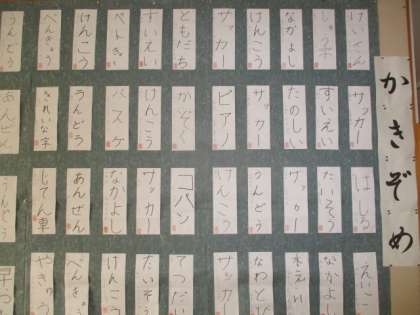 かきぞめ
けいさん
なかよし
けんこう
サッカー
ともだち
すいえい
けんこう
べんきょう
うんどう
サッカー
すいえい
たのしい
サッカー
ピアノ
かぞく
けんこう
バスケ
うんどう
きれいな字
あんぜん
はしる
たいそう
サッカー
うんどう
けんこう
コハン
サッカー
なかよし
あんぜん
じてん車
うんどう
えいご
なかよし
水えい
なわとび
サッカー
てつだい
たいそう
けんこう
べんきょう
やきゅう